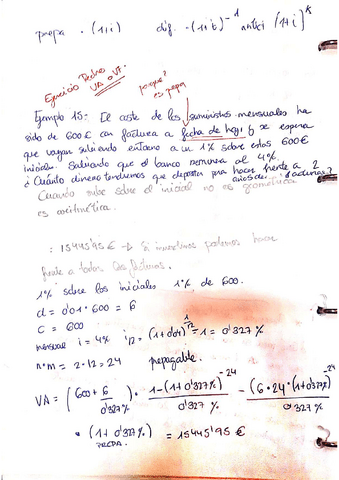 prepa · (1+i) dif. · (1+i)⁻¹ antici (1+i)ᵏ
Ejercicio Hecho
VA o VF.
porque?
es prepa
Ejemplo 15: El coste de los suministros mensuales ha
sido de 600€ con factura a fecha de hoy, y se espera
que vayan subiendo entorno a un 1% sobre estos 600€
iniciales. Sabiendo que el banco remunera al 4%
¿Cuánto dinero tendremos que depositar para hacer frente a 2
años de facturas?
Cuando sube sobre el inicial no es geométrica
es aritmética.
: 15445'95€ → Si invertimos podemos hacer
frente a todas las facturas.
1% sobre los iniciales 1% de 600.
d = 0'01 · 600 = 6
C = 600
mensual i = 4% i₁₂ = (1+0'04)^1/12 - 1 = 0'327%
n·m = 2·12 = 24 prepagable.
VA = (600 + 6/0'327%) · 1-(1+0'327%)⁻²⁴/0'327% - (6·24·(1+0'327%)⁻²⁴/0'327%)
· (1+0'327%) = 15445'95 €
PREPA.